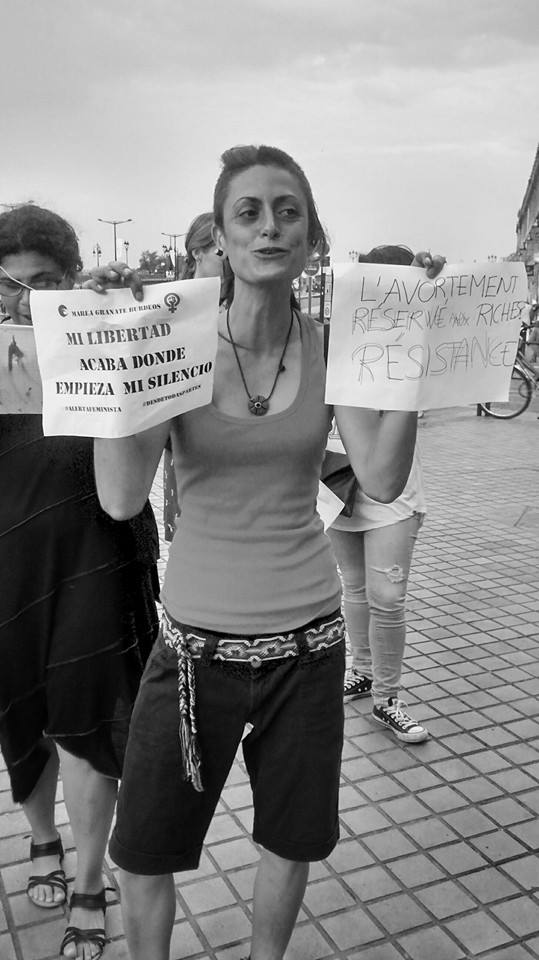 MAREA GRANATE BURDEOS
MI LIBERTAD
ACABA DONDE
EMPIEZA MI SILENCIO
#ALERTAFEMINISTA #DESDETODASPARTES
L'AVORTEMENT
RESERVÉ AUX RICHES
RÉSISTANCE